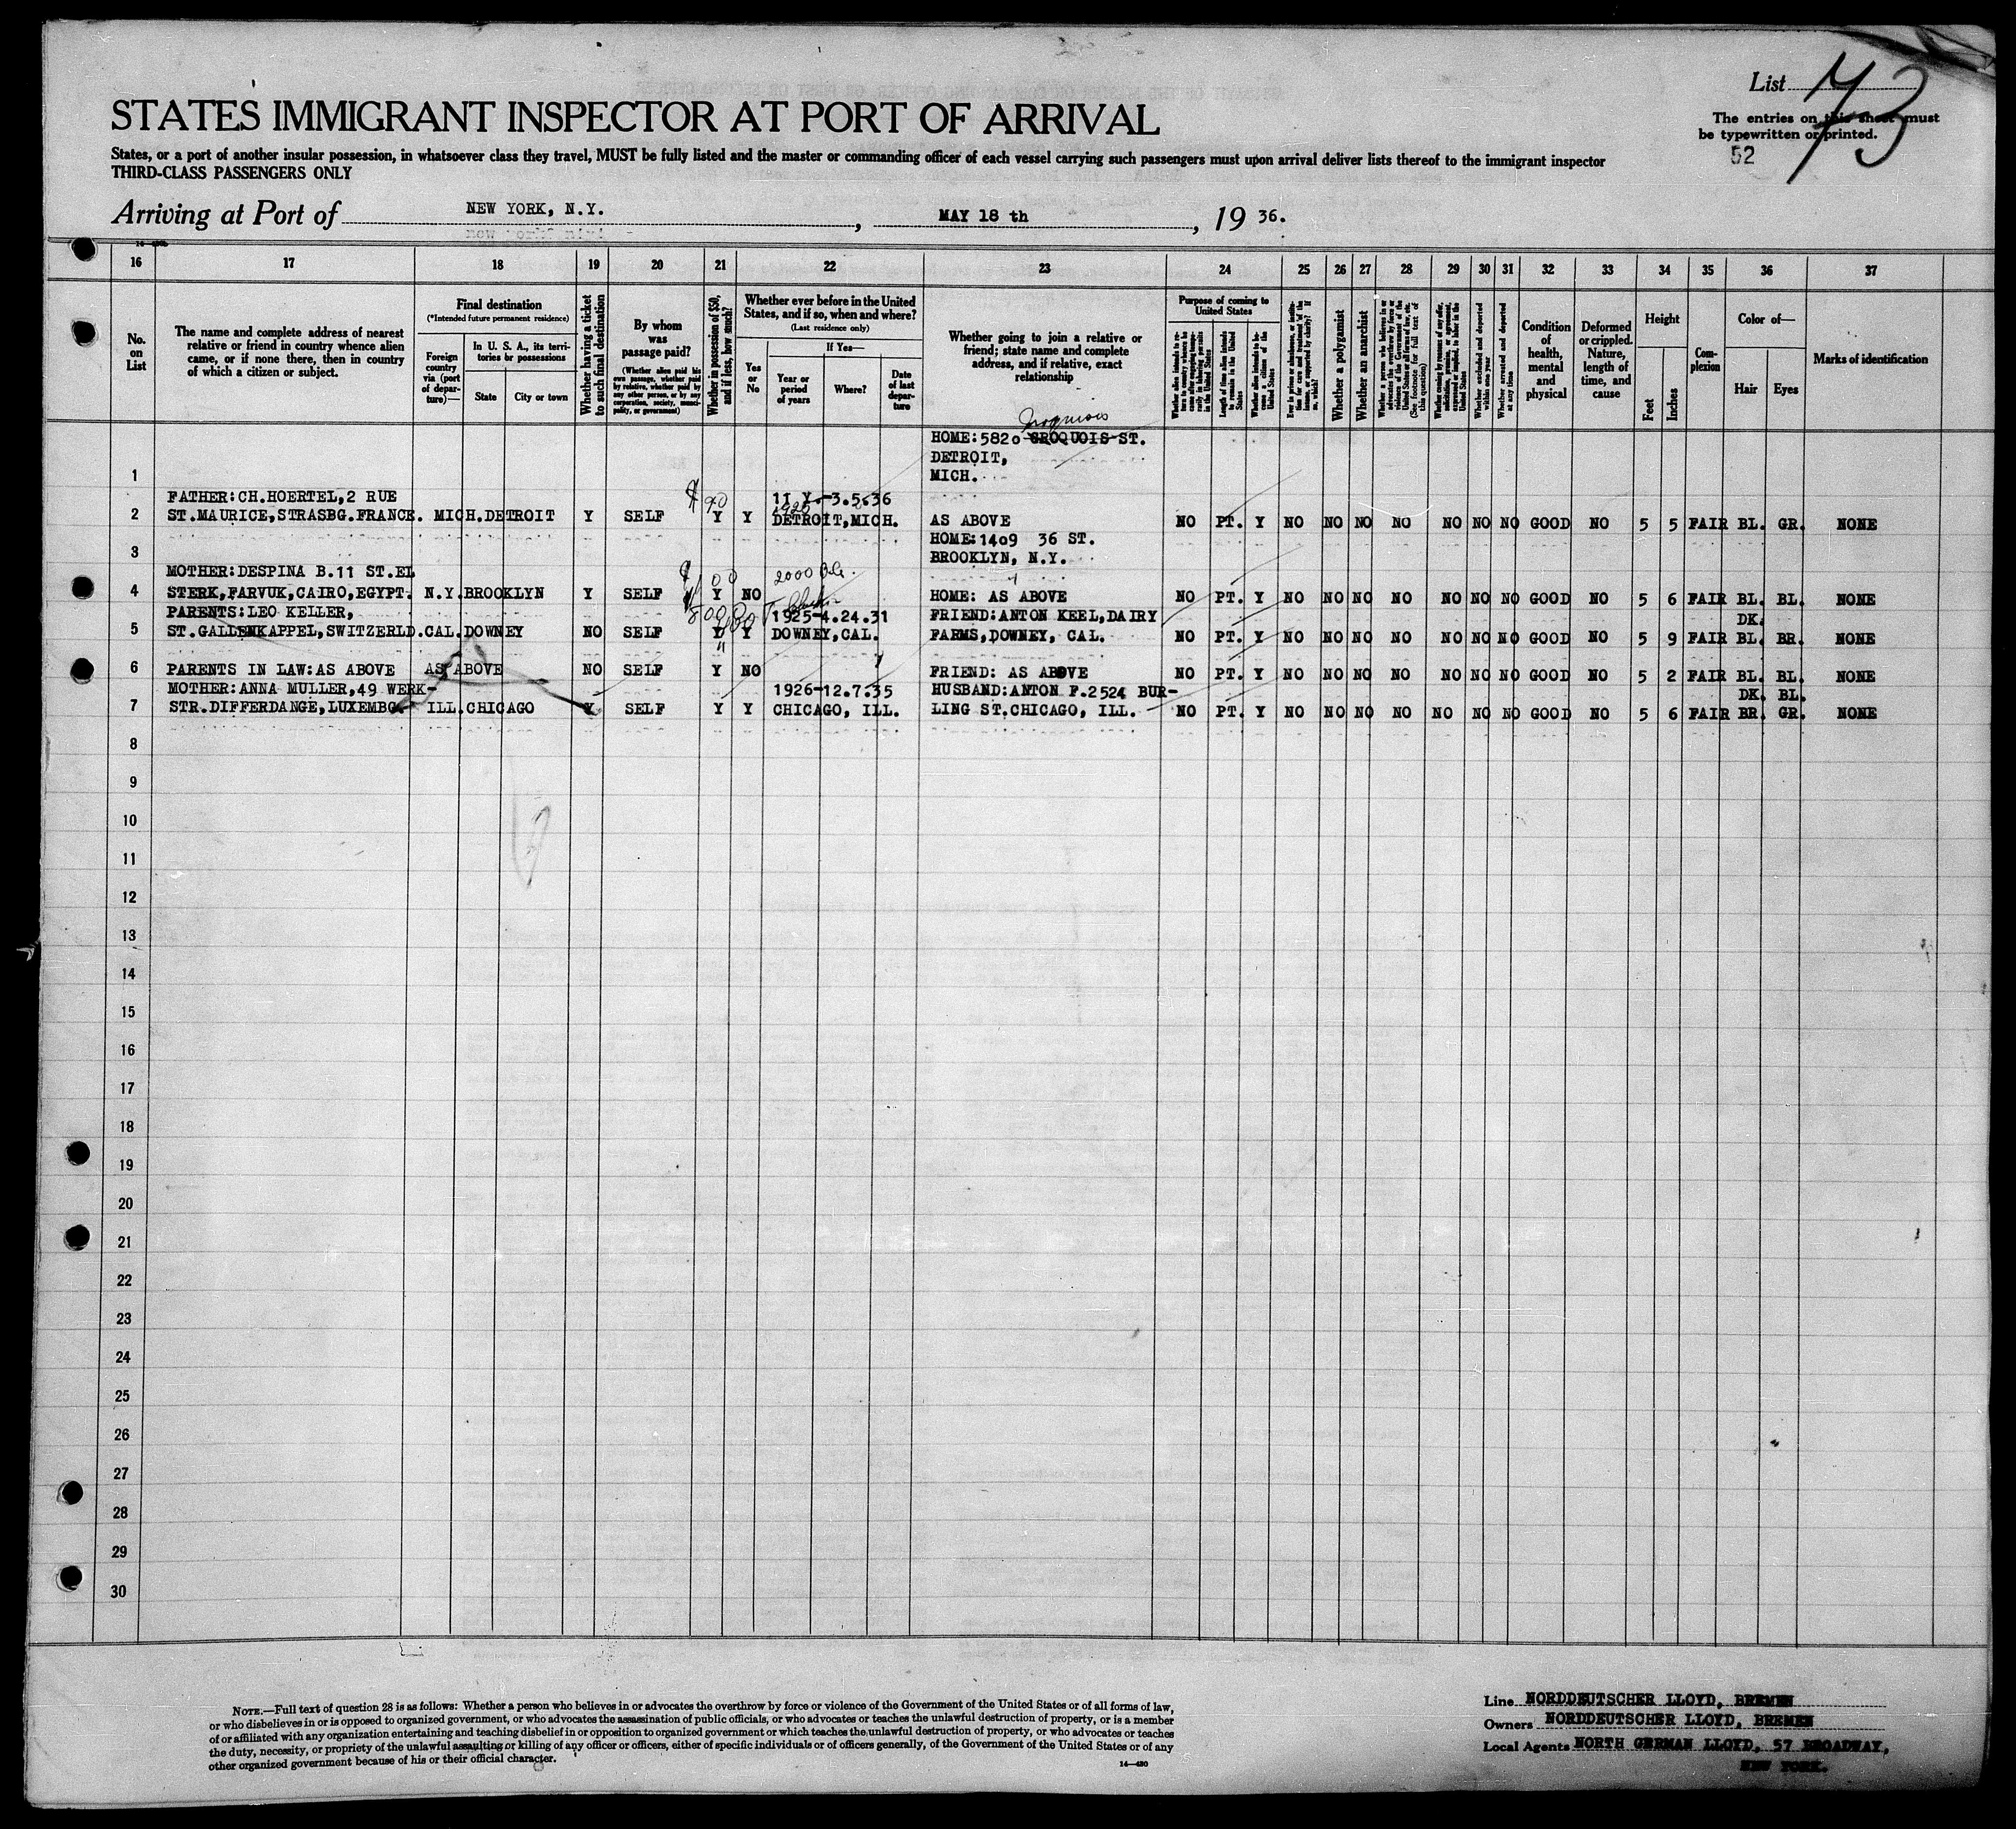 List 73
STATES IMMIGRANT INSPECTOR AT PORT OF ARRIVAL
The entries on this sheet must
be typewritten or printed.
52
States, or a port of another insular possession, in whatsoever class they travel, MUST be fully listed and the master or commanding officer of each vessel carrying such passengers must upon arrival deliver lists thereof to the immigrant inspector
THIRD-CLASS PASSENGERS ONLY
Arriving at Port of NEW YORK, N.Y., MAY 18 th, 19 36.
16 17 18 19 20 21 22 23 24 25 26 27 28 29 30 31 32 33 34 35 36 37
No. on List
The name and complete address of nearest relative or friend in country whence alien came, or if none there, then in country of which a citizen or subject.
Final destination
(*Intended future permanent residence)
Foreign country via (port of departure)—
In U. S. A., its territories or possessions
State
City or town
Whether having a ticket to such final destination
By whom was passage paid?
(Whether alien paid his own passage, whether paid by relative, whether paid by any other person, or by any corporation, society, municipality, or government)
Whether in possession of $50, and if less, how much?
Whether ever before in the United States, and if so, when and where?
(Last residence only)
Yes or No
If Yes—
Year or period of years
Where?
Date of last departure
Whether going to join a relative or friend; state name and complete address, and if relative, exact relationship
Purpose of coming to United States
Length of time alien intends to remain in the United States
Whether alien intends to become a citizen of the United States
Whether a polygamist
Whether an anarchist
Whether excluded and deported within one year
Whether arrested and deported at any time
Condition of health, mental and physical
Deformed or crippled. Nature, length of time, and cause
Height
Feet
Inches
Complexion
Color of—
Hair
Eyes
Marks of identification
Iroquois
HOME:5820 GROQUOIS ST.
DETROIT,
1 MICH.
FATHER:CH.HOERTEL,2 RUE $90 11 Y.-3.5.36
1925
2 ST.MAURICE,STRASBG.FRANCE. MICH.DETROIT Y SELF Y Y DETROIT,MICH. AS ABOVE NO PT. Y NO NO NO NO NO NO NO GOOD NO 5 5 FAIR BL. GR. NONE
HOME:1409 36 ST.
3 BROOKLYN, N.Y.
MOTHER:DESPINA B.11 ST.EL 2000
4 STERK,FARVUK,CAIRO,EGYPT. N.Y.BROOKLYN Y SELF Y NO HOME: AS ABOVE NO PT. Y NO NO NO NO NO NO NO GOOD NO 5 6 FAIR BL. BL. NONE
PARENTS:LEO KELLER, 1925-4.24.31 FRIEND:ANTON KEEL,DAIRY DK.
5 ST.GALLENKAPPEL,SWITZERLD.CAL.DOWNEY NO SELF Y Y DOWNEY,CAL. FARMS,DOWNEY, CAL. NO PT. Y NO NO NO NO NO NO NO GOOD NO 5 9 FAIR BL. BR. NONE
6 PARENTS IN LAW:AS ABOVE AS ABOVE NO SELF Y NO FRIEND: AS ABOVE NO PT. Y NO NO NO NO NO NO NO GOOD NO 5 2 FAIR BL. BL. NONE
MOTHER:ANNA MULLER,49 WERK- 1926-12.7.35 HUSBAND:ANTON F.2524 BUR- DK. BL.
7 STR.DIFFERDANGE,LUXEMBG. ILL.CHICAGO Y SELF Y Y CHICAGO, ILL. LING ST.CHICAGO, ILL. NO PT. Y NO NO NO NO NO NO NO GOOD NO 5 6 FAIR BR. GR. NONE
8
9
10
11
12
13
14
15
16
17
18
19
20
21
22
23
24
25
26
27
28
29
30
NOTE.—Full text of question 28 is as follows: Whether a person who believes in or advocates the overthrow by force or violence of the Government of the United States or of all forms of law,
or who disbelieves in or is opposed to organized government, or who advocates the assassination of public officials, or who advocates or teaches the unlawful destruction of property, or is a member
of or affiliated with any organization entertaining and teaching disbelief in or opposition to organized government or which teaches the unlawful destruction of property, or who advocates or teaches
the duty, necessity, or propriety of the unlawful assaulting or killing of any officer or officers, either of specific individuals or of officers generally, of the Government of the United States or of any
other organized government because of his or their official character.
14—480
Line NORDDEUTSCHER LLOYD, BREMEN
Owners NORDDEUTSCHER LLOYD, BREMEN
Local Agents NORTH GERMAN LLOYD, 57 BROADWAY,
NEW YORK.